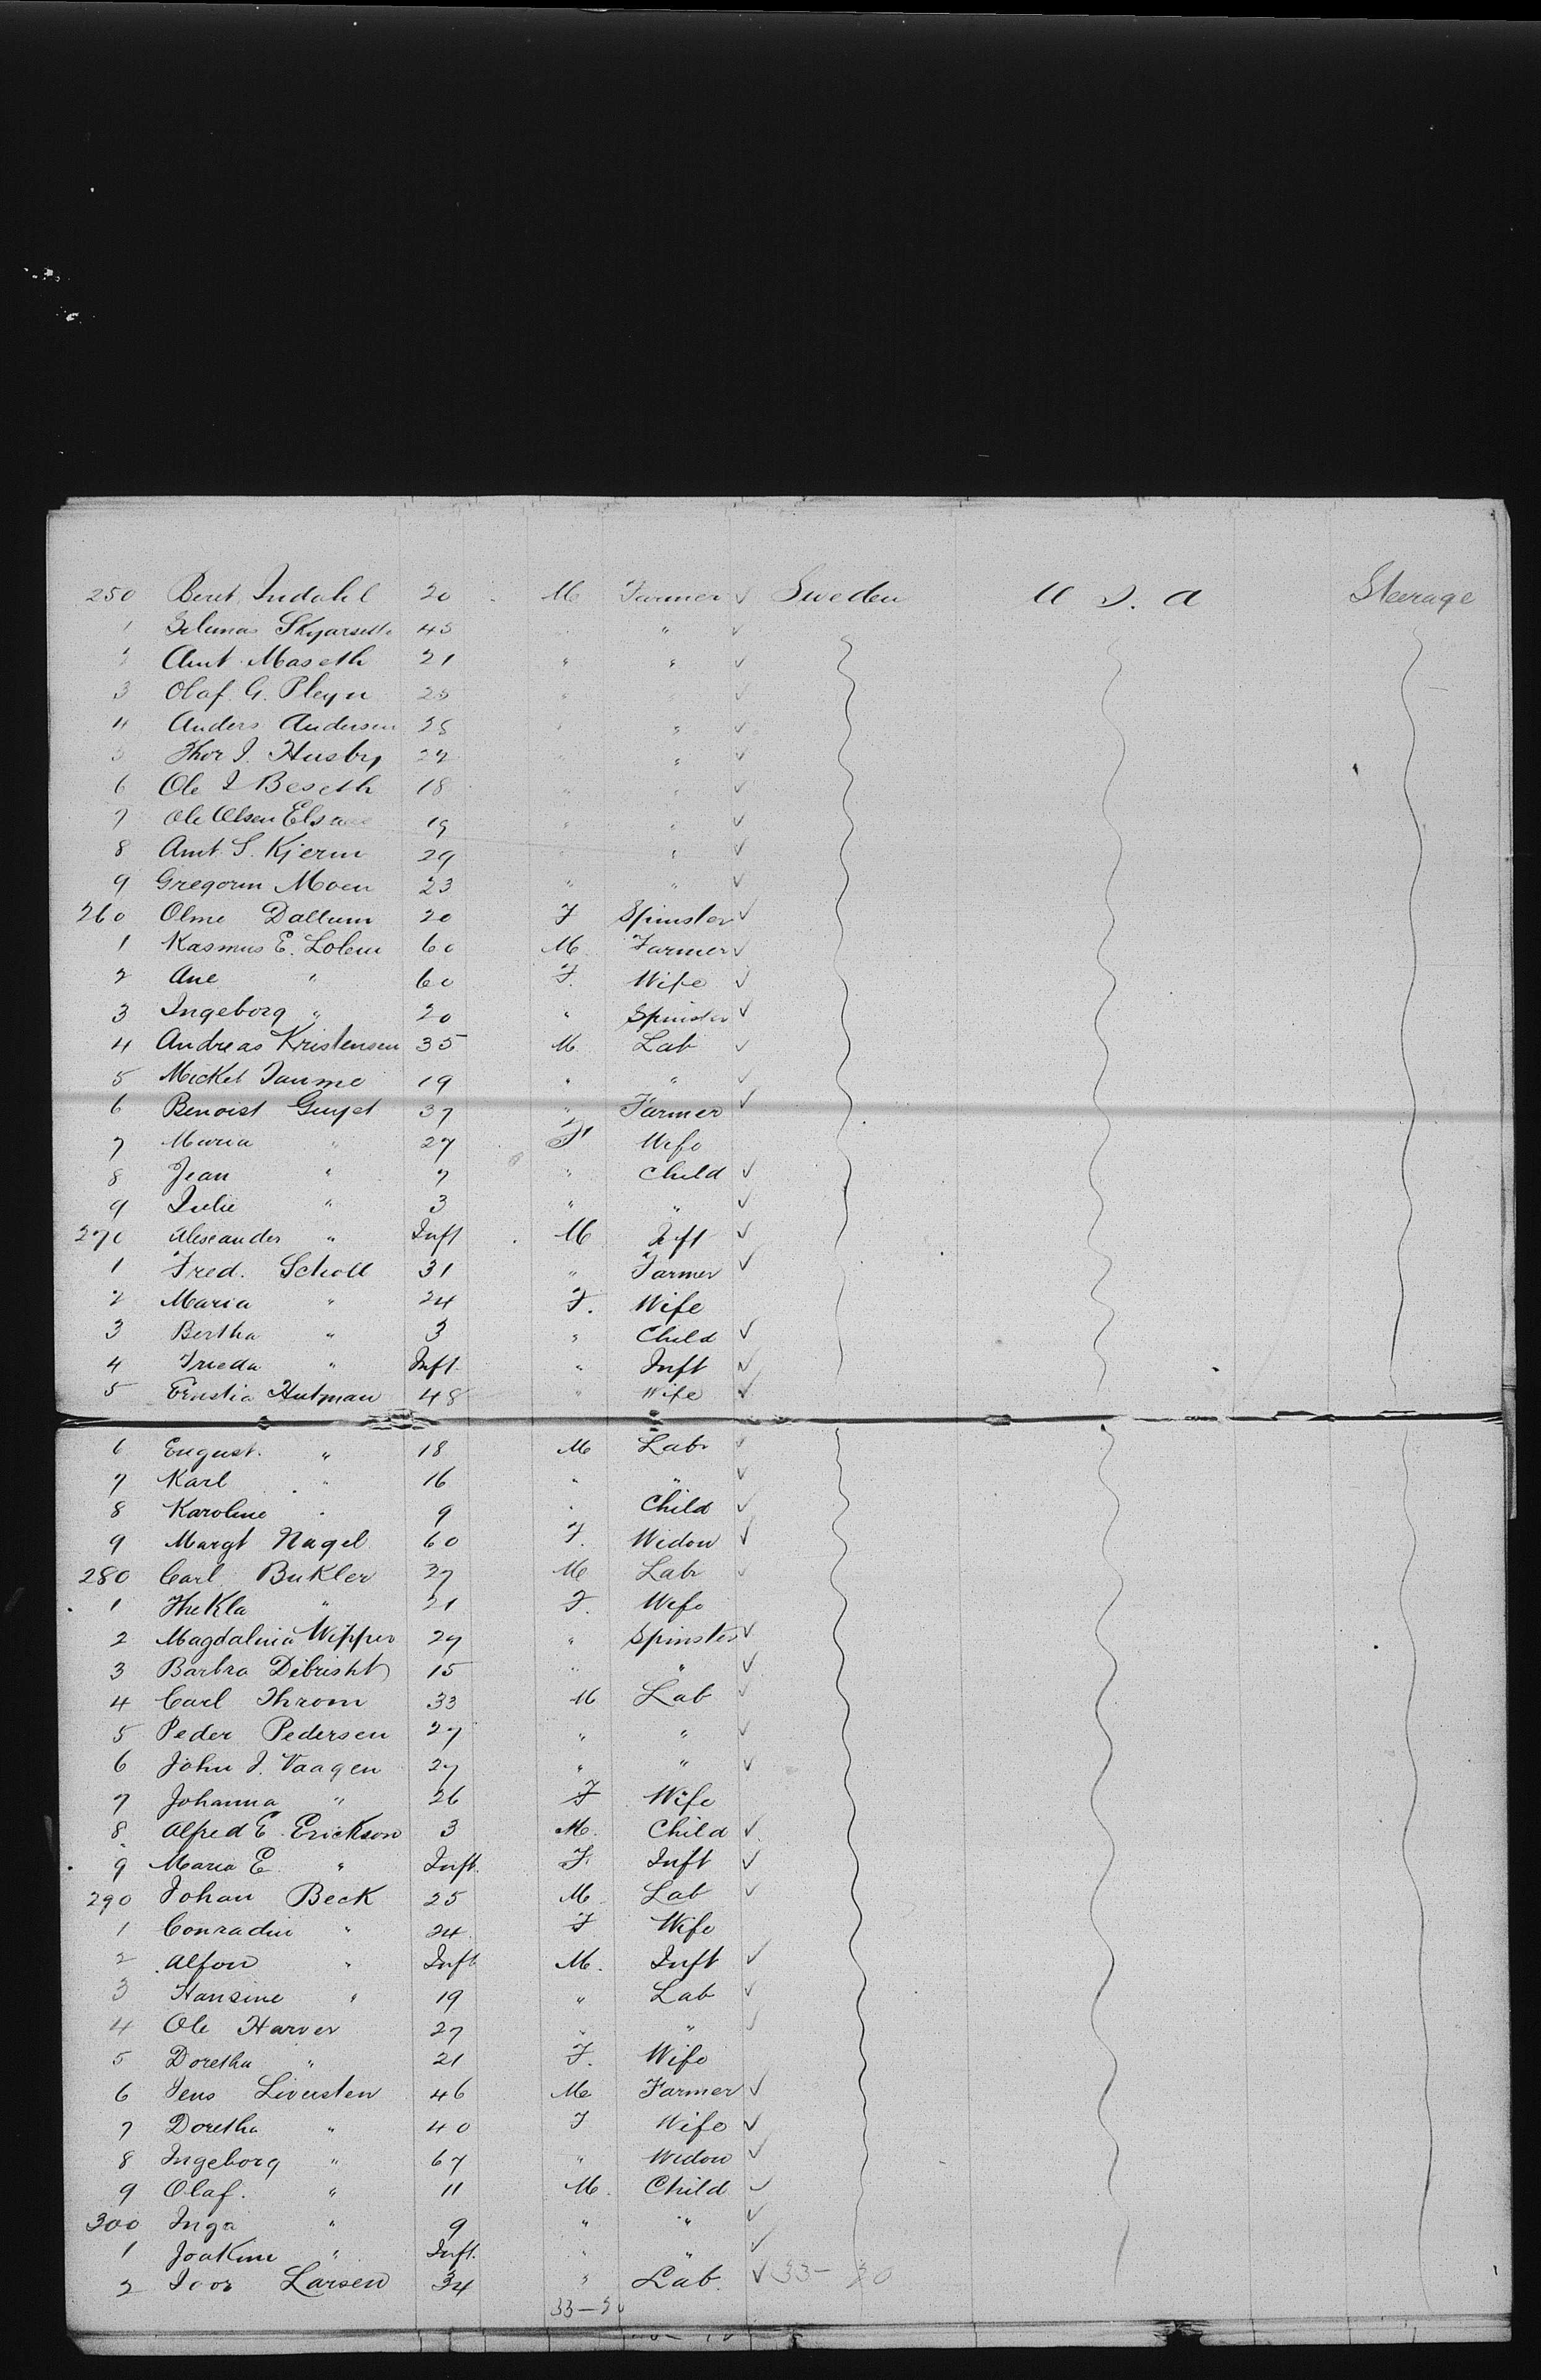 250 Beret Indahl 20 M Farmer ✓ Sweden U S. A Steerage
1 43 " ✓
2 Arnt Maseth 21 " " ✓
3 Olaf G. Pleyn 25 " " ✓
4 Anders Andersen 25 " " ✓
5 Thor I. Husby 22 " " ✓
6 Ole I Beseth 18 " " ✓
7 Ole Olsen 19 " " ✓
8 Arnt S. Kjerm 29 " " ✓
9 Gregorm Moen 23 " " ✓
260 Olme Dallum 20 F Spinster ✓
1 Rasmus E. Lolem 60 M Farmer ✓
2 Ane " 60 F. Wife ✓
3 Ingeborg " 20 " Spinster ✓
4 Andreas Kristensen 35 M Lab ✓
5 Mickel 19 " " ✓
6 Benoist Guyet 37 " Farmer ✓
7 Maria " 27 F Wife
8 Jean " 7 " Child ✓
9 Julie " 3 " " ✓
270 Alexander " Inft M Inft ✓
1 Fred. Scholl 31 " Farmer ✓
2 Maria " 24 F. Wife
3 Bertha " 3 " Child ✓
4 Frieda " Inft " Inft ✓
5 Ernstia Hutman 48 " Wife ✓
6 Eugust. " 18 M Labr ✓
7 Karl " 16 " " ✓
8 Karoline " 9 " Child ✓
9 Margt Nagel 60 F. Widow ✓
280 Carl Bukler 37 M Labr ✓
1 Thekla " 21 F. Wife
2 Magdalina Wipper 27 " Spinster ✓
3 Barbra Debrisht 15 " " ✓
4 Carl Throm 33 M Lab ✓
5 Peder Pedersen 27 " " ✓
6 John J. Vaagen 27 " " ✓
7 Johanna " 26 F Wife
8 Alfred E. Erickson 3 M. Child ✓
9 Maria E " Inft. F. Inft ✓
290 Johan Beck 25 M Lab ✓
1 Conradin " 24 F Wife
2 Alfon " Inft M. Inft ✓
3 Hansine " 19 " Lab ✓
4 Ole Harver 27 " " ✓
5 Doretha " 21 F. Wife
6 Jens Liversten 46 M Farmer ✓
7 Doretha " 40 F Wife ✓
8 Ingeborg " 67 " Widow ✓
9 Olaf. " 11 M. Child ✓
300 Inga " 9 " " ✓
1 Joakim " Inft. " " ✓
2 Ivor Larsen 34 " Lab. ✓ 33-20
33-20